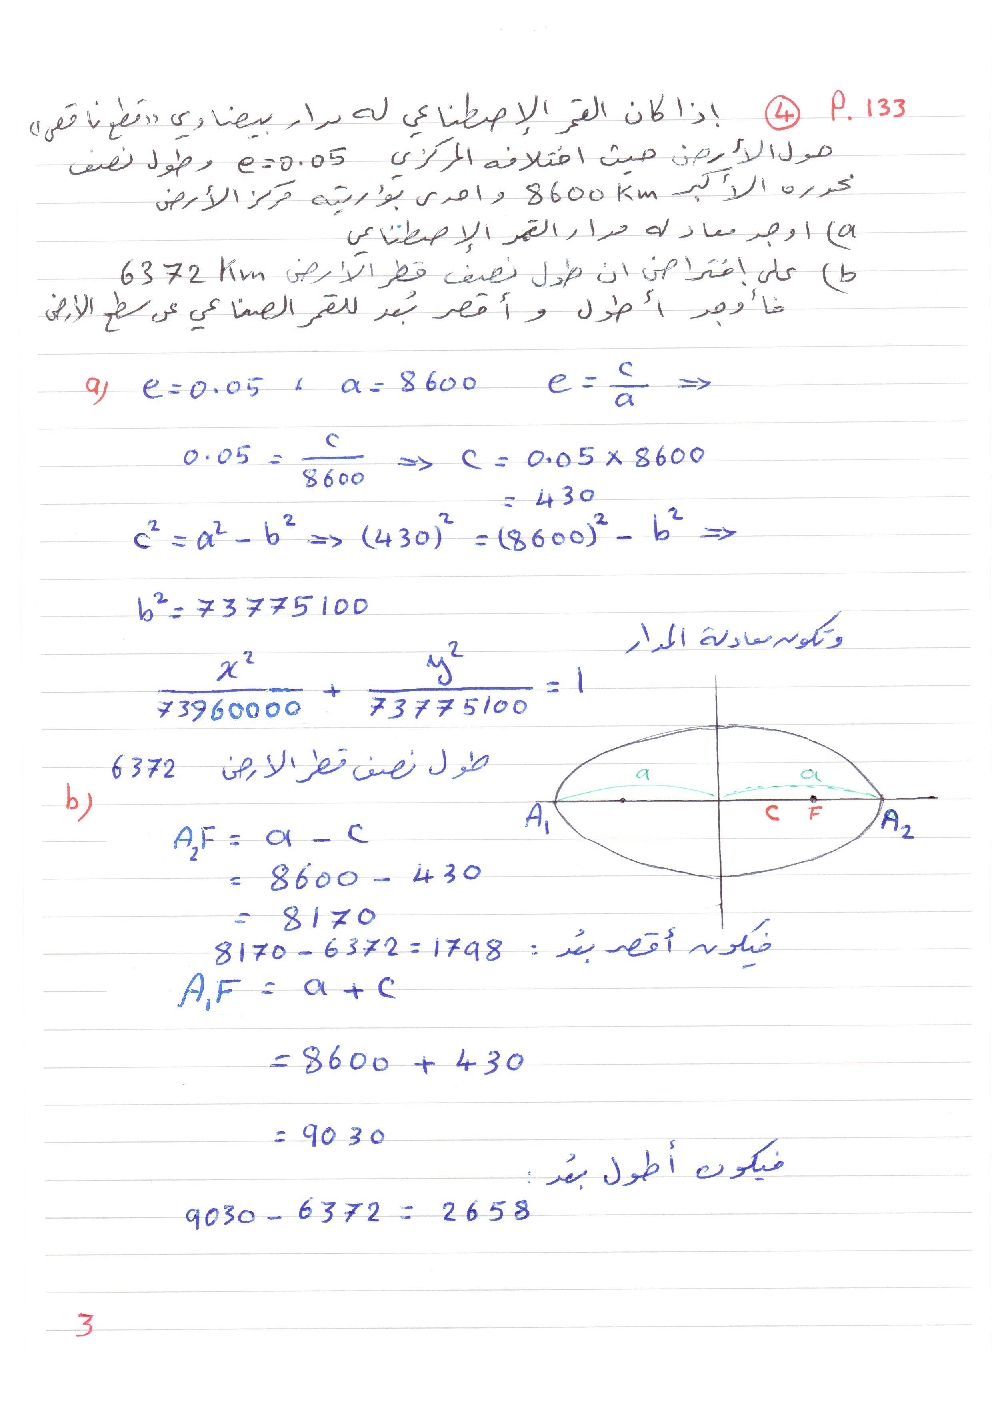 P. 133 ④ إذا كان القمر الإصطناعي له مدار بيضاوي "قطع ناقص"
حول الأرض حيث اختلافه المركزي e=0.05 وطول نصف
محوره الأكبر 8600 Km واحدى بؤرتيه مركز الأرض
a) اوجد معادلة مدار القمر الإصطناعي
b) على إفتراض ان طول نصف قطر الأرض 6372 Km
فأوجد أطول و أقصر بُعد للقمر الصناعي عن سطح الأرض
a) e=0.05 ، a=8600 e = c/a =>
0.05 = c/8600 => c = 0.05 × 8600
= 430
c² = a² - b² => (430)² = (8600)² - b² =>
b² = 73775100
وتكون معادلة المدار
x²/73960000 + y²/73775100 = 1
طول نصف قطر الارض 6372
b)
a a
A₁ C F A₂
A₂F = a - c
= 8600 - 430
= 8170
فيكون أقصر بُعد : 8170 - 6372 = 1798
A₁F = a + c
= 8600 + 430
= 9030
فيكون أطول بُعد :
9030 - 6372 = 2658
3